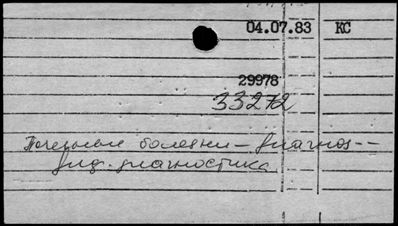 04.07.83 КС
29978
33272
Почечные болезни - диагноз--
диагностика